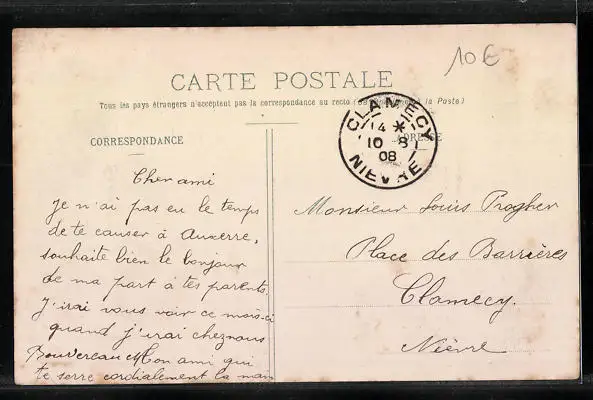 10€
CARTE POSTALE
Tous les pays étrangers n'acceptent pas la correspondance au recto (se à la Poste)
CORRESPONDANCE
ADRESSE
CLAMECY
14 *
10 - 8
08
NIEVRE
Cher ami
Je n'ai pas eu le temps
de te causer à Auxerre,
souhaite bien le bonjour
de ma part à tes parents.
J'irai vous voir ce mois-ci
quand j'irai chez nous
Mon ami qui
te serre cordialement la main
Monsieur Louis Progher
Place des Barrières
Clamecy.
Nièvre